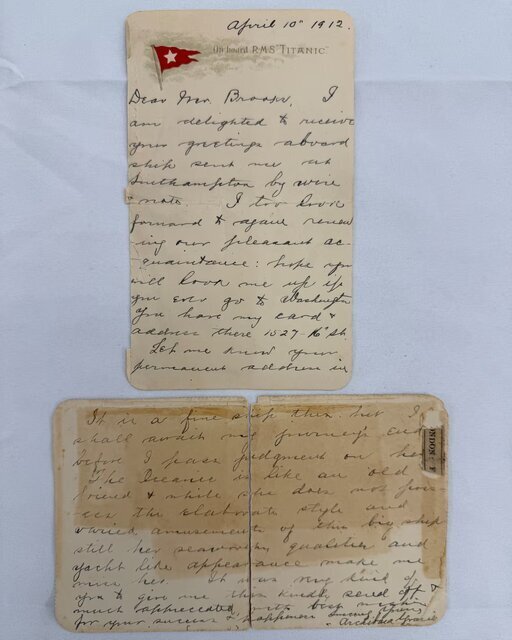 April 10th 1912.
On board R.M.S. "TITANIC"
Dear Mr. I
am delighted to receive
your greetings aboard
ship sent me at
Southampton by wire
& note. I too look
forward to again renew
ing our pleasant ac-
quaintance: hope you
will look me up if
you ever go to Washington
You have my card &
address there 1527-16th St.
Let me know your
permanent address in
It is a fine ship this but I
shall await my journey's end
before I pass judgment on her
The Oceanic is like an old
friend & while she does not poss-
ess the elaborate style and
varied amusements of this big ship
still her seaworthy qualities and
yacht like appearance make me
miss her. It was very kind of
you to give me this kindly send off &
much appreciated, with best wishes
for your success & happiness
Archibald Gracie
ONDON